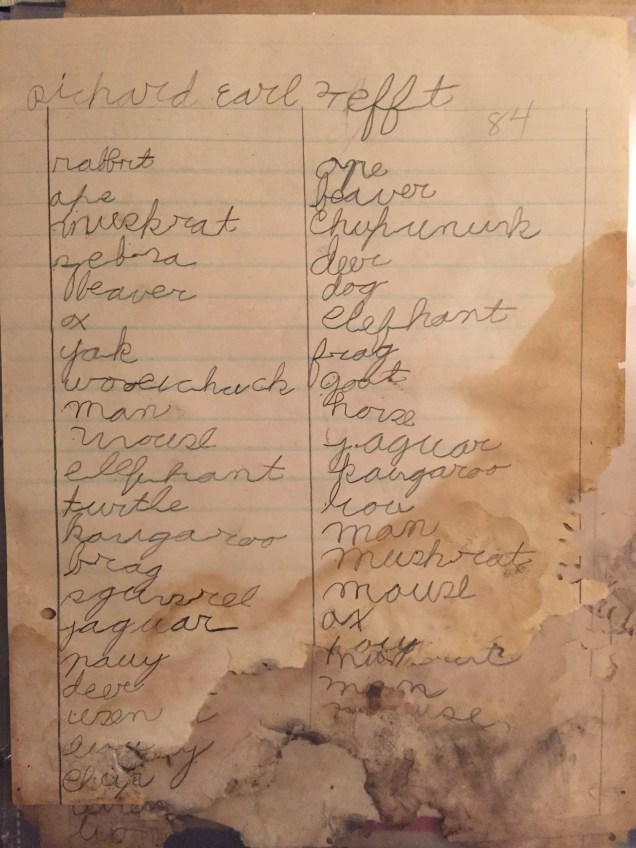 Richard Earl Tefft
84
rabbit
ape
muskrat
zebra
beaver
ox
yak
woodchuck
man
mouse
elephant
turtle
kangaroo
brag
sqarsrel
jaguar
deer
ape
beaver
Chupunurk
deer
dog
elephant
frog
goat
horse
jaguar
kangaroo
man
muskrat
mouse
ox
man